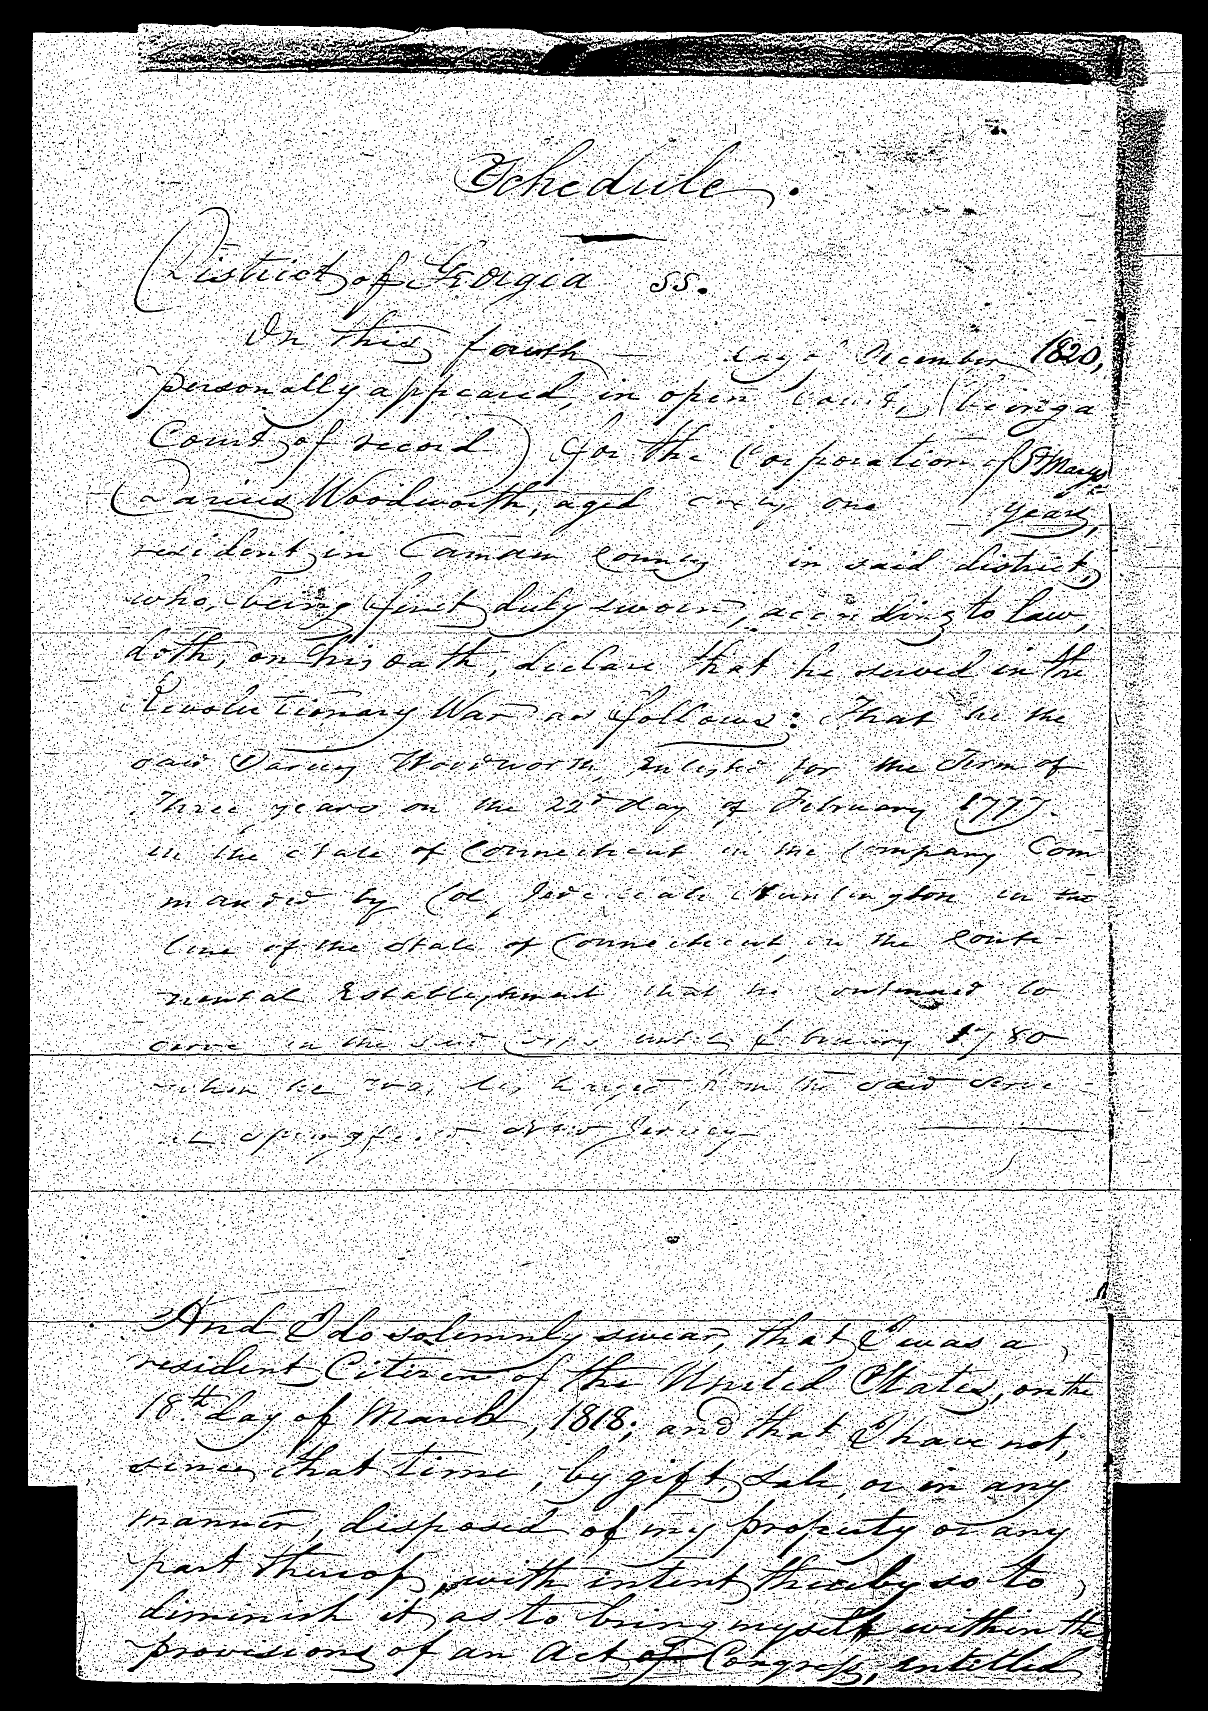 Schedule.
District of Georgia SS.
On this fourth — day of December 1820,
personally appeared, in open Court, (being a
Court of record) for the Corporation of St Marys
Darius Woodworth, aged sixty one years,
resident in Camden County in said district,
who, being first duly sworn, according to law,
doth, on his oath, declare that he served in the
Revolutionary War as follows: That he the
said Darius Woodworth, Enlisted for the Term of
Three years on the 22d day of February 1777.
in the State of Connecticut in the Company Com
manded by Col, Jedediah Huntington in the
line of the State of Connecticut, in the Conti-
nental Establishment that he continued to
serve in the said Corps until February 1780
when he was discharged from the said Serv
at Springfield New Jersey
And I do solemnly swear, that I was a
resident Citizen of the United States, on the
18th day of March, 1818; and that I have not,
since that time, by gift, sale, or in any
manner, disposed of my property or any
part thereof, with intent thereby so to
diminish it, as to bring myself within the
provisions of an Act of Congress, entitled